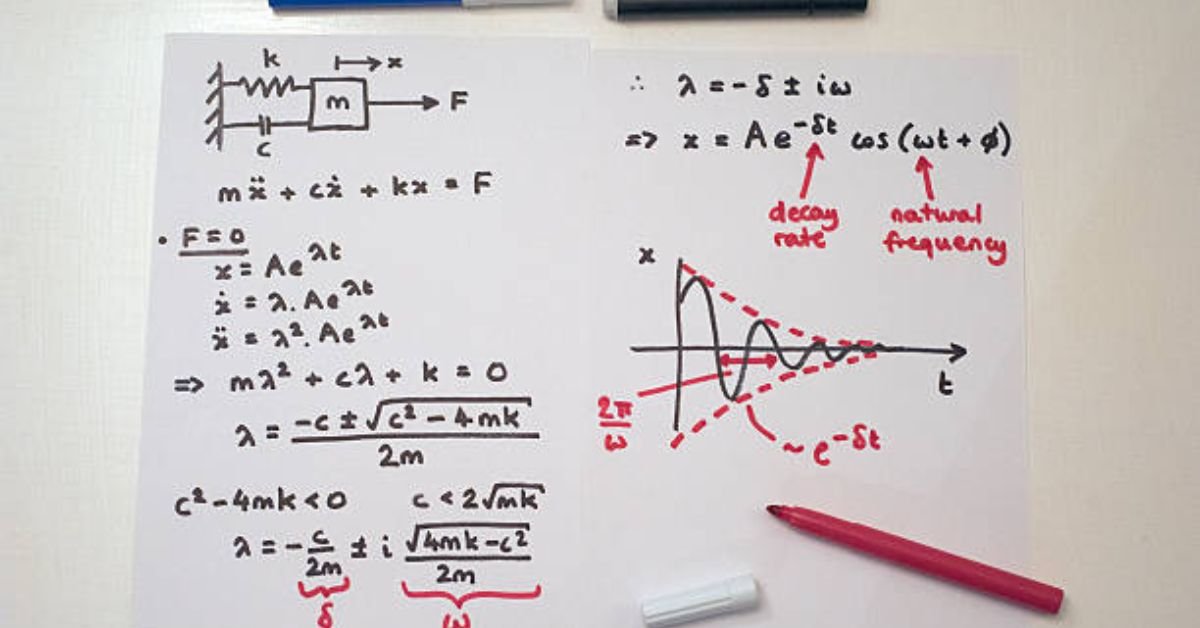 k
x
m
F
c
mẍ + cẋ + kx = F
• F = 0
x = Ae^λt
ẋ = λ. Ae^λt
ẍ = λ². Ae^λt
=> mλ² + cλ + k = 0
λ = -c ± √(c² - 4mk) / 2m
c² - 4mk < 0 c < 2√mk
λ = - c/2m ± i √(4mk - c²) / 2m
δ ω
∴ λ = -δ ± iω
=> x = Ae^-δt cos (ωt + φ)
decay rate
natural frequency
x
t
2π/ω
~ e^-δt